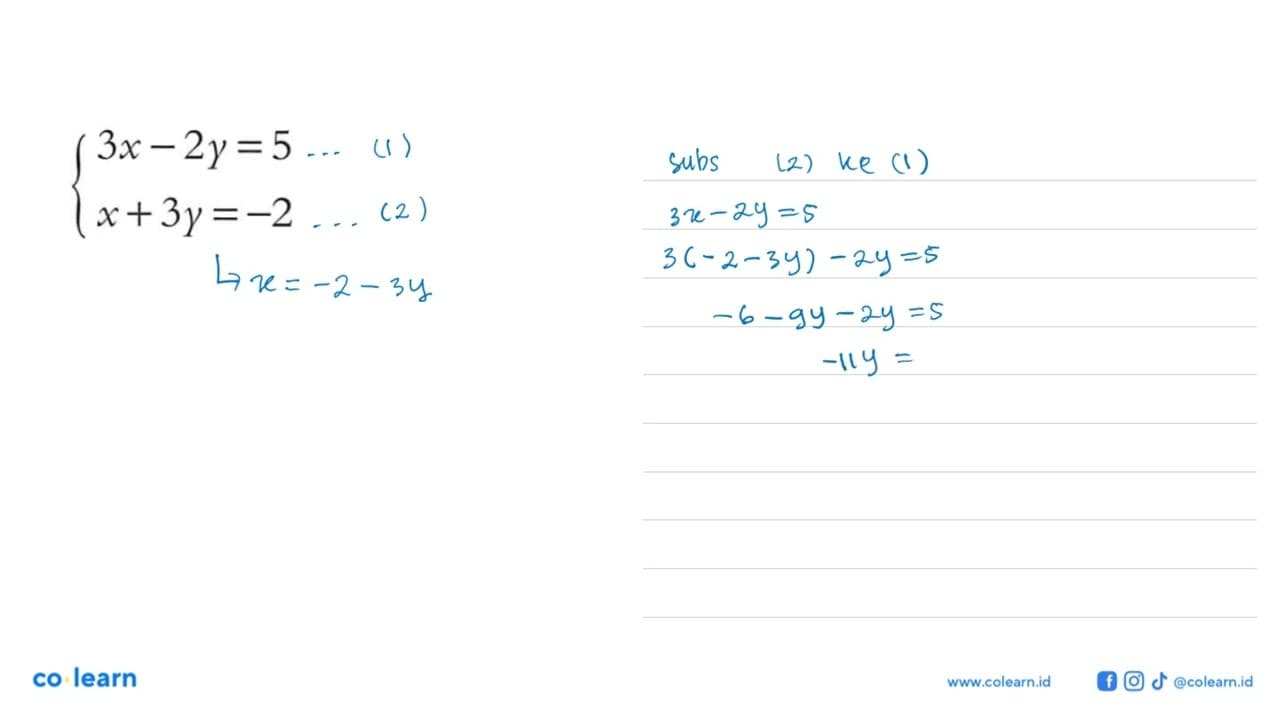 3x − 2y = 5 ... (1)
x + 3y = −2 ... (2)
↳ x = −2 − 3y
subs (2) ke (1)
3x − 2y = 5
3(−2 − 3y) − 2y = 5
−6 − 9y − 2y = 5
−11y =
co·learn
www.colearn.id
@colearn.id